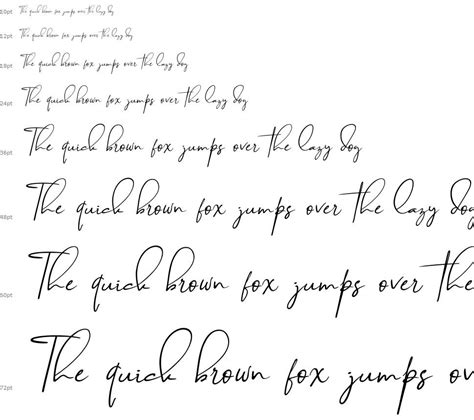 10pt The quick brown fox jumps over the lazy dog
12pt The quick brown fox jumps over the lazy dog
18pt The quick brown fox jumps over the lazy dog
24pt The quick brown fox jumps over the lazy dog
36pt The quick brown fox jumps over the lazy dog
48pt The quick brown fox jumps over the lazy dog
60pt The quick brown fox jumps over the
72pt The quick brown fox jumps ov